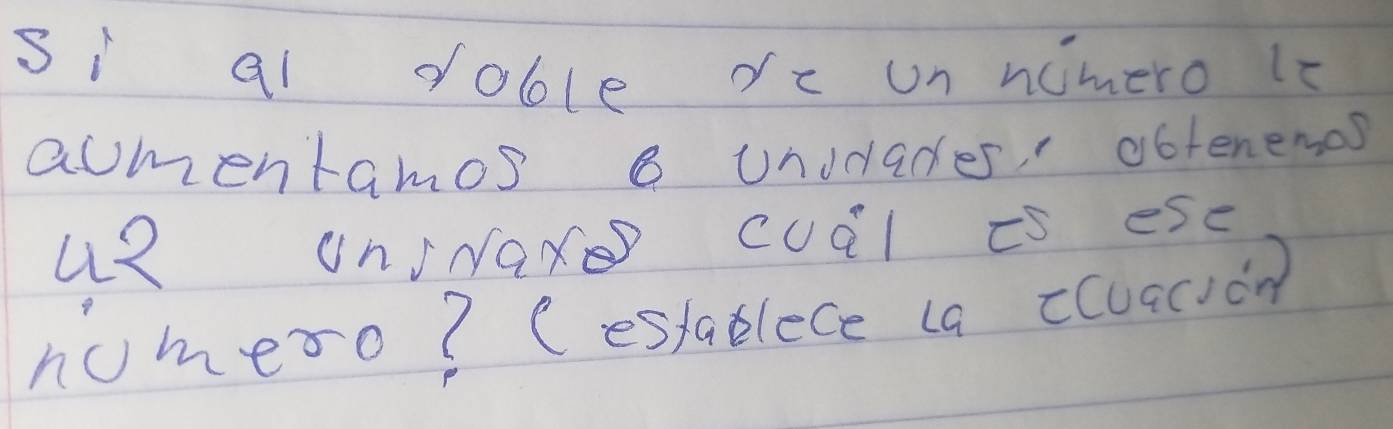 Si al doble de un número le
aumentamos 6 unidades, obtenemos
42 unidades cuál es ese
número? (establece la ecuación)